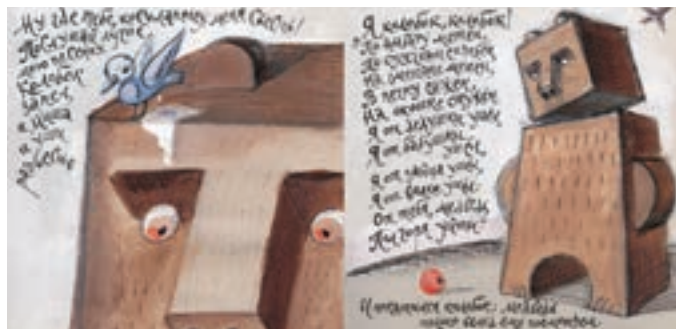 Ну где тебе, косолапому, меня съесть!
Послушай лучше,
мою песенку
Колобок
запел,
а Миша
и уши
развесил
Я колобок, колобок!
По амбару метен,
По сусекам скребен
На сметане мешен,
В печку сажен,
На окошке стужен
Я от дедушки ушел
Я от бабушки
ушел
Я от зайца ушел,
Я от волка ушел
От тебя, медведь
Полгоря уйти
И покатился колобок: медведь